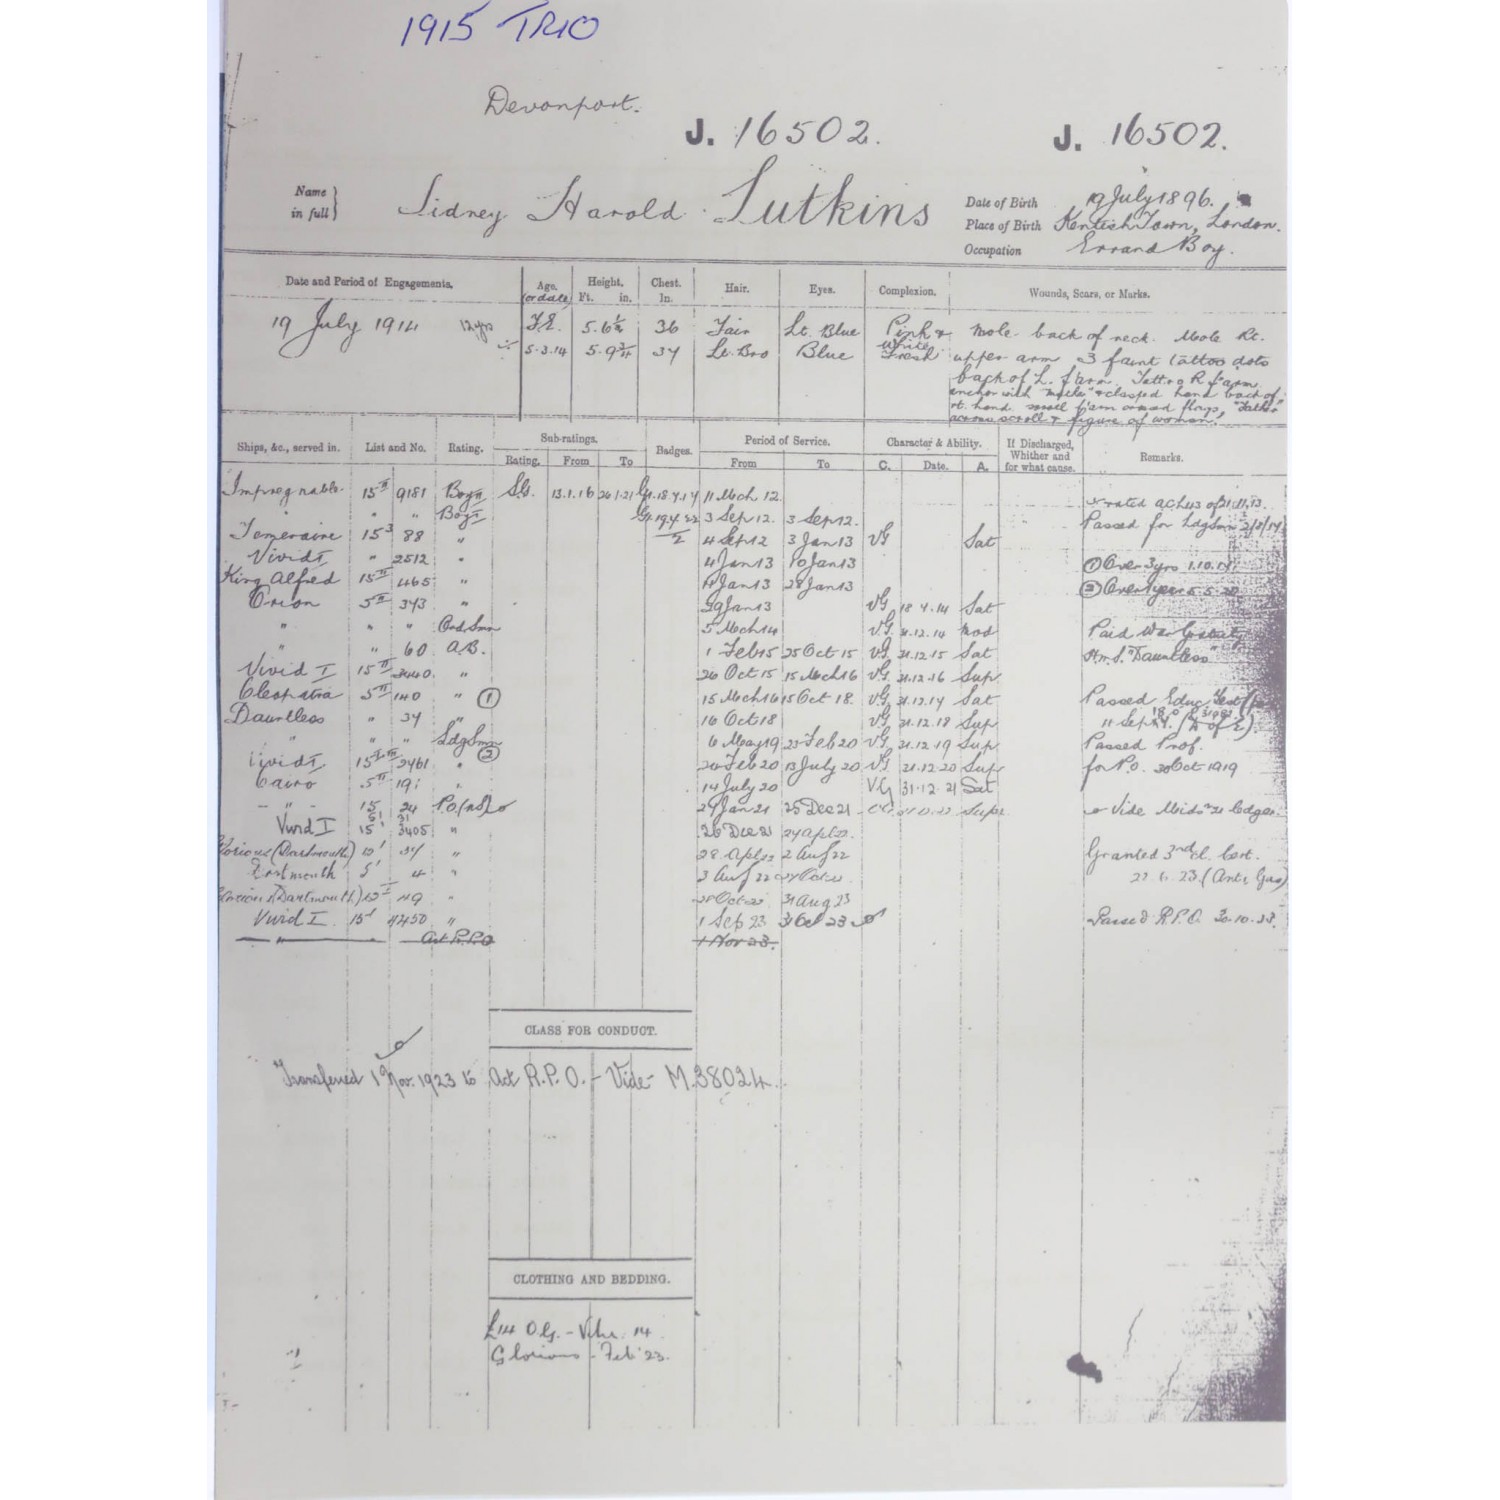 1915 TRIO
Devonport.
J. 16502. J. 16502.
Name in full } Sidney Harold Lutkins
Date of Birth 19 July 1896.
Place of Birth Kentish Town, London.
Occupation Errand Boy.
Date and Period of Engagements. Age. (or date) Height. Ft. in. Chest. In. Hair. Eyes. Complexion. Wounds, Scars, or Marks.
19 July 1914 12 yrs 5.6½ 36 Fair Lt. Blue Pink & White mole back of neck. Mole Rt.
5.3.14 5.9¾ 37 Lt. Bro Blue Fresh upper arm 3 faint tattoo dots
back of L. f'arm. Tattoo R f'arm
anchor with "Mother" & clasped hand back of
rt. hand. small f'arm flags, "Father"
across scroll & figure of woman.
Ships, &c., served in. List and No. Rating. Sub-ratings. Rating. From To Badges. Period of Service. From To Character & Ability. C. Date. A. If Discharged, Whither and for what cause. Remarks.
Impregnable 15II 9181 Boy II S.G. 13.1.16 26.1.21 11 Mch 12.
" " Boy I 3 Sep 12. 3 Sep 12. Passed for Ldg Smn 2/8/17
Temeraire 15 3 88 " 4 Sep 12 3 Jan 13 VG Sat
Vivid I " 2512 " 4 Jan 13 10 Jan 13 ① Over 3 yrs 1.10.17
King Alfred 15II 465 " 11 Jan 13 28 Jan 13 ② Over 1 year 5.5.20
Orion 5II 343 " 29 Jan 13 VG 18.7.14 Sat
" " " Ord Smn 5 Mch 14 VG 31.12.14 Mod Paid War Gratuity
" 60 A.B. 1 Feb 15 25 Oct 15 VG 31.12.15 Sat H.M.S. "Dauntless"
Vivid I 15II 3440 " 26 Oct 15 15 Mch 16 VG 31.12.16 Sup
Cleopatra 5II 140 " ① 15 Mch 16 15 Oct 18. VG 31.12.17 Sat Passed Educ Test
Dauntless " 34 " 16 Oct 18 VG 31.12.18 Sup
" " " Ldg Smn ② 6 May 19 23 Feb 20 VG 31.12.19 Sup Passed Prof.
Vivid I 2461 " 24 Feb 20 13 July 20 VG 31.12.20 Sup for P.O. 30 Oct 1919
Cairo 5II 191 " 14 July 20 VG 31.12.21 Sat
" 24 P.O. 25 Dec 21 Vide ledger.
Vivid I 15I 3405 " 26 Dec 21 27 Apl 22.
Glorious (Dartmouth) 34 " 28 Apl 22 2 Aug 22 Granted 3rd cl. Cert.
Dartmouth 5I 4 " 3 Aug 22 22.6.23. (Anti Gas)
Glorious (Dartmouth) 49 " 31 Aug 23
Vivid I 15I 4450 " 1 Sep 23 31 Oct 23 Passed R.P.O. 30.10.23.
" Act R.P.O 1 Nov 23.
CLASS FOR CONDUCT.
Transferred 1st Nov. 1923 to Act R.P.O. - Vide - M.38024.
CLOTHING AND BEDDING.
Glorious - Feb '23.